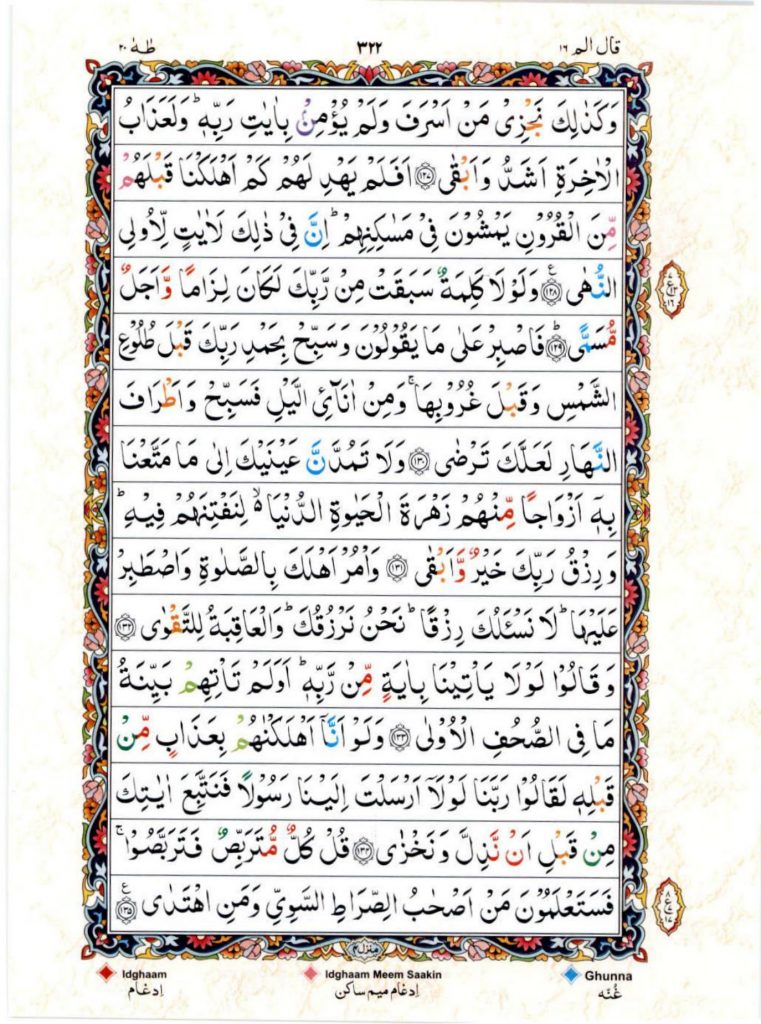 قال الم ١٦ ٣٢٢ طٰهٰ ٢٠
وَكَذٰلِكَ نَجْزِیْ مَنْ اَسْرَفَ وَلَمْ یُؤْمِنْۢ بِاٰیٰتِ رَبِّهٖ ؕ وَلَعَذَابُ
الْاٰخِرَةِ اَشَدُّ وَاَبْقٰی ﴿۱۲۷﴾ اَفَلَمْ یَهْدِ لَهُمْ كَمْ اَهْلَكْنَا قَبْلَهُمْ
مِّنَ الْقُرُوْنِ یَمْشُوْنَ فِیْ مَسٰكِنِهِمْ ؕ اِنَّ فِیْ ذٰلِكَ لَاٰیٰتٍ لِّاُولِی
النُّهٰی ﴿۱۲۸﴾ ع وَلَوْلَا كَلِمَةٌ سَبَقَتْ مِنْ رَّبِّكَ لَكَانَ لِزَامًا وَّاَجَلٌ
مُّسَمًّی ﴿۱۲۹﴾ ؕ فَاصْبِرْ عَلٰی مَا یَقُوْلُوْنَ وَسَبِّحْ بِحَمْدِ رَبِّكَ قَبْلَ طُلُوْعِ
الشَّمْسِ وَقَبْلَ غُرُوْبِهَا ۚ وَمِنْ اٰنَآئِ الَّیْلِ فَسَبِّحْ وَاَطْرَافَ
النَّهَارِ لَعَلَّكَ تَرْضٰی ﴿۱۳۰﴾ وَلَا تَمُدَّنَّ عَیْنَیْكَ اِلٰی مَا مَتَّعْنَا
بِهٖۤ اَزْوَاجًا مِّنْهُمْ زَهْرَةَ الْحَیٰوةِ الدُّنْیَا ۙ۬ لِنَفْتِنَهُمْ فِیْهِ ؕ
وَرِزْقُ رَبِّكَ خَیْرٌ وَّاَبْقٰی ﴿۱۳۱﴾ وَاْمُرْ اَهْلَكَ بِالصَّلٰوةِ وَاصْطَبِرْ
عَلَیْهَا ؕ لَا نَسْـَٔلُكَ رِزْقًا ؕ نَحْنُ نَرْزُقُكَ ؕ وَالْعَاقِبَةُ لِلتَّقْوٰی ﴿۱۳۲﴾
وَقَالُوْا لَوْلَا یَاْتِیْنَا بِاٰیَةٍ مِّنْ رَّبِّهٖ ؕ اَوَلَمْ تَاْتِهِمْ بَیِّنَةُ
مَا فِی الصُّحُفِ الْاُوْلٰی ﴿۱۳۳﴾ وَلَوْ اَنَّاۤ اَهْلَكْنٰهُمْ بِعَذَابٍ مِّنْ
قَبْلِهٖ لَقَالُوْا رَبَّنَا لَوْلَاۤ اَرْسَلْتَ اِلَیْنَا رَسُوْلًا فَنَتَّبِعَ اٰیٰتِكَ
مِنْ قَبْلِ اَنْ نَّذِلَّ وَنَخْزٰی ﴿۱۳۴﴾ قُلْ كُلٌّ مُّتَرَبِّصٌ فَتَرَبَّصُوْا ۚ
فَسَتَعْلَمُوْنَ مَنْ اَصْحٰبُ الصِّرَاطِ السَّوِیِّ وَمَنِ اهْتَدٰی ﴿۱۳۵﴾ ع
منزل ٤
Idghaam Idghaam Meem Saakin Ghunna
اِدغام اِدغام میم ساکن غُنّه